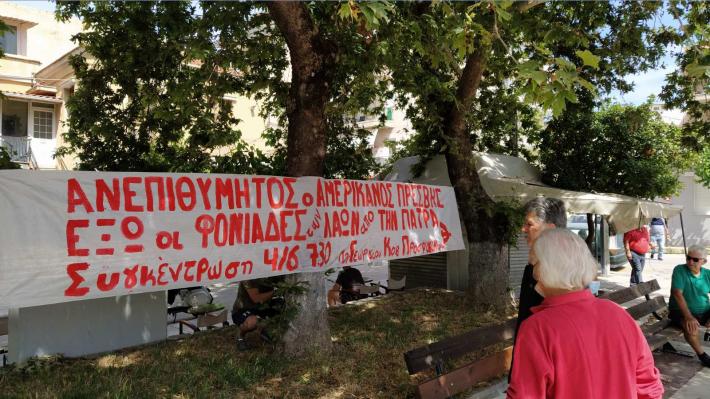 ΑΝΕΠΙΘΥΜΗΤΟΣ Ο ΑΜΕΡΙΚΑΝΟΣ ΠΡΕΣΒΗΣ
ΕΞΩ ΟΙ ΦΟΝΙΑΔΕΣ των ΛΑΩΝ από ΤΗΝ ΠΑΤΡΑ
Συγκέντρωση 4/6 7:30 Πλ. Γεωργίου